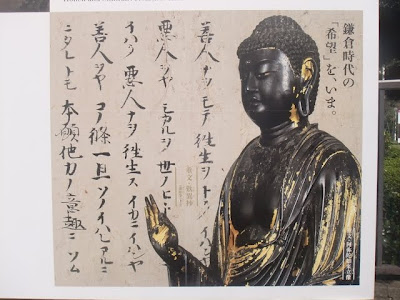 鎌倉時代の
「希望」を、いま。
善人ナヲモテ往生ヲトクイハンヤ
悪人ヲヤシカルヲ世ノヒト
イハク悪人ナヲ往生スイカニイハンヤ
善人ヲヤコノ條一旦ソノイハレアルニ
ニタレトモ本願他力ノ意趣ニソム
重文・歎異抄